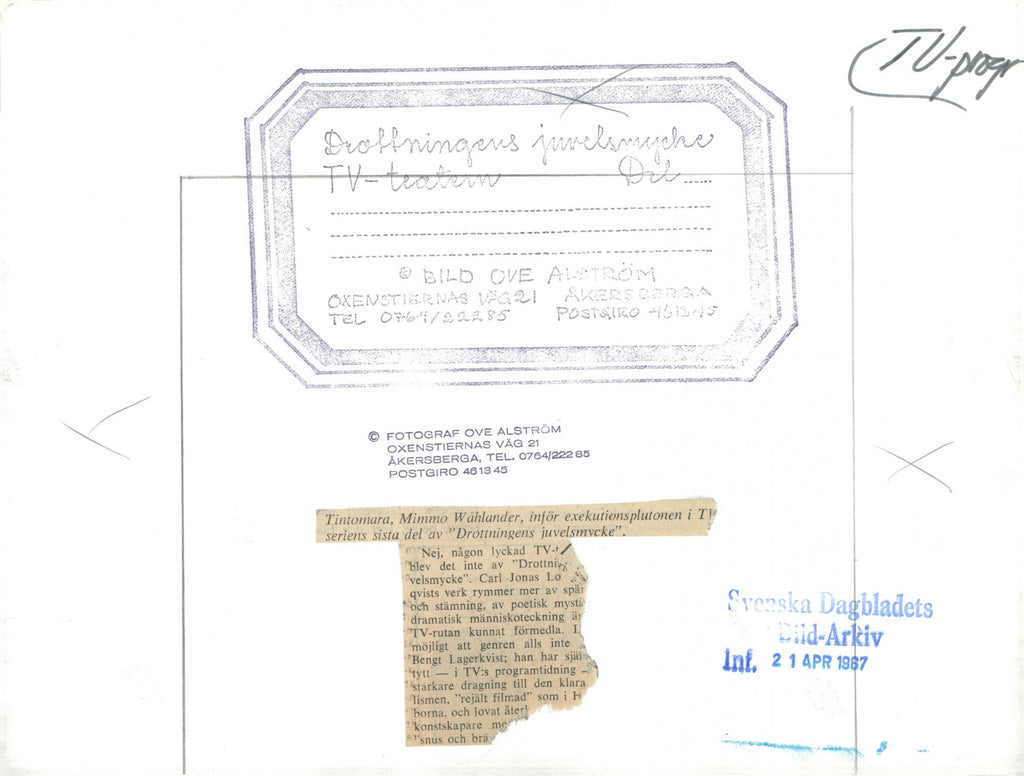 TV-progr
Drottningens juvelsmycke
TV-teatern Del
© BILD OVE ALSTRÖM
OXENSTIERNAS VÄG 21 ÅKERSBERGA
TEL 0764/22285 POSTGIRO 461345
© FOTOGRAF OVE ALSTRÖM
OXENSTIERNAS VÄG 21
ÅKERSBERGA, TEL. 0764/222 85
POSTGIRO 46 13 45
Tintomara, Mimmo Wåhlander, inför exekutionsplutonen i TV
seriens sista del av "Drottningens juvelsmycke".
Nej, någon lyckad TV-
blev det inte av "Drottni
velsmycke". Carl Jonas Lo
qvists verk rymmer mer av spä
och stämning, av poetisk mysti
dramatisk människoteckning ä
TV-rutan kunnat förmedla. 
möjligt att genren alls inte
Bengt Lagerkvist; han har själ
tytt — i TV:s programtidning —
starkare dragning till den klara
lismen, "rejält filmad" som i H
borna, och lovat åter
konstskapare me
"snus och brä
Svenska Dagbladets
Bild-Arkiv
Inf. 21 APR 1967